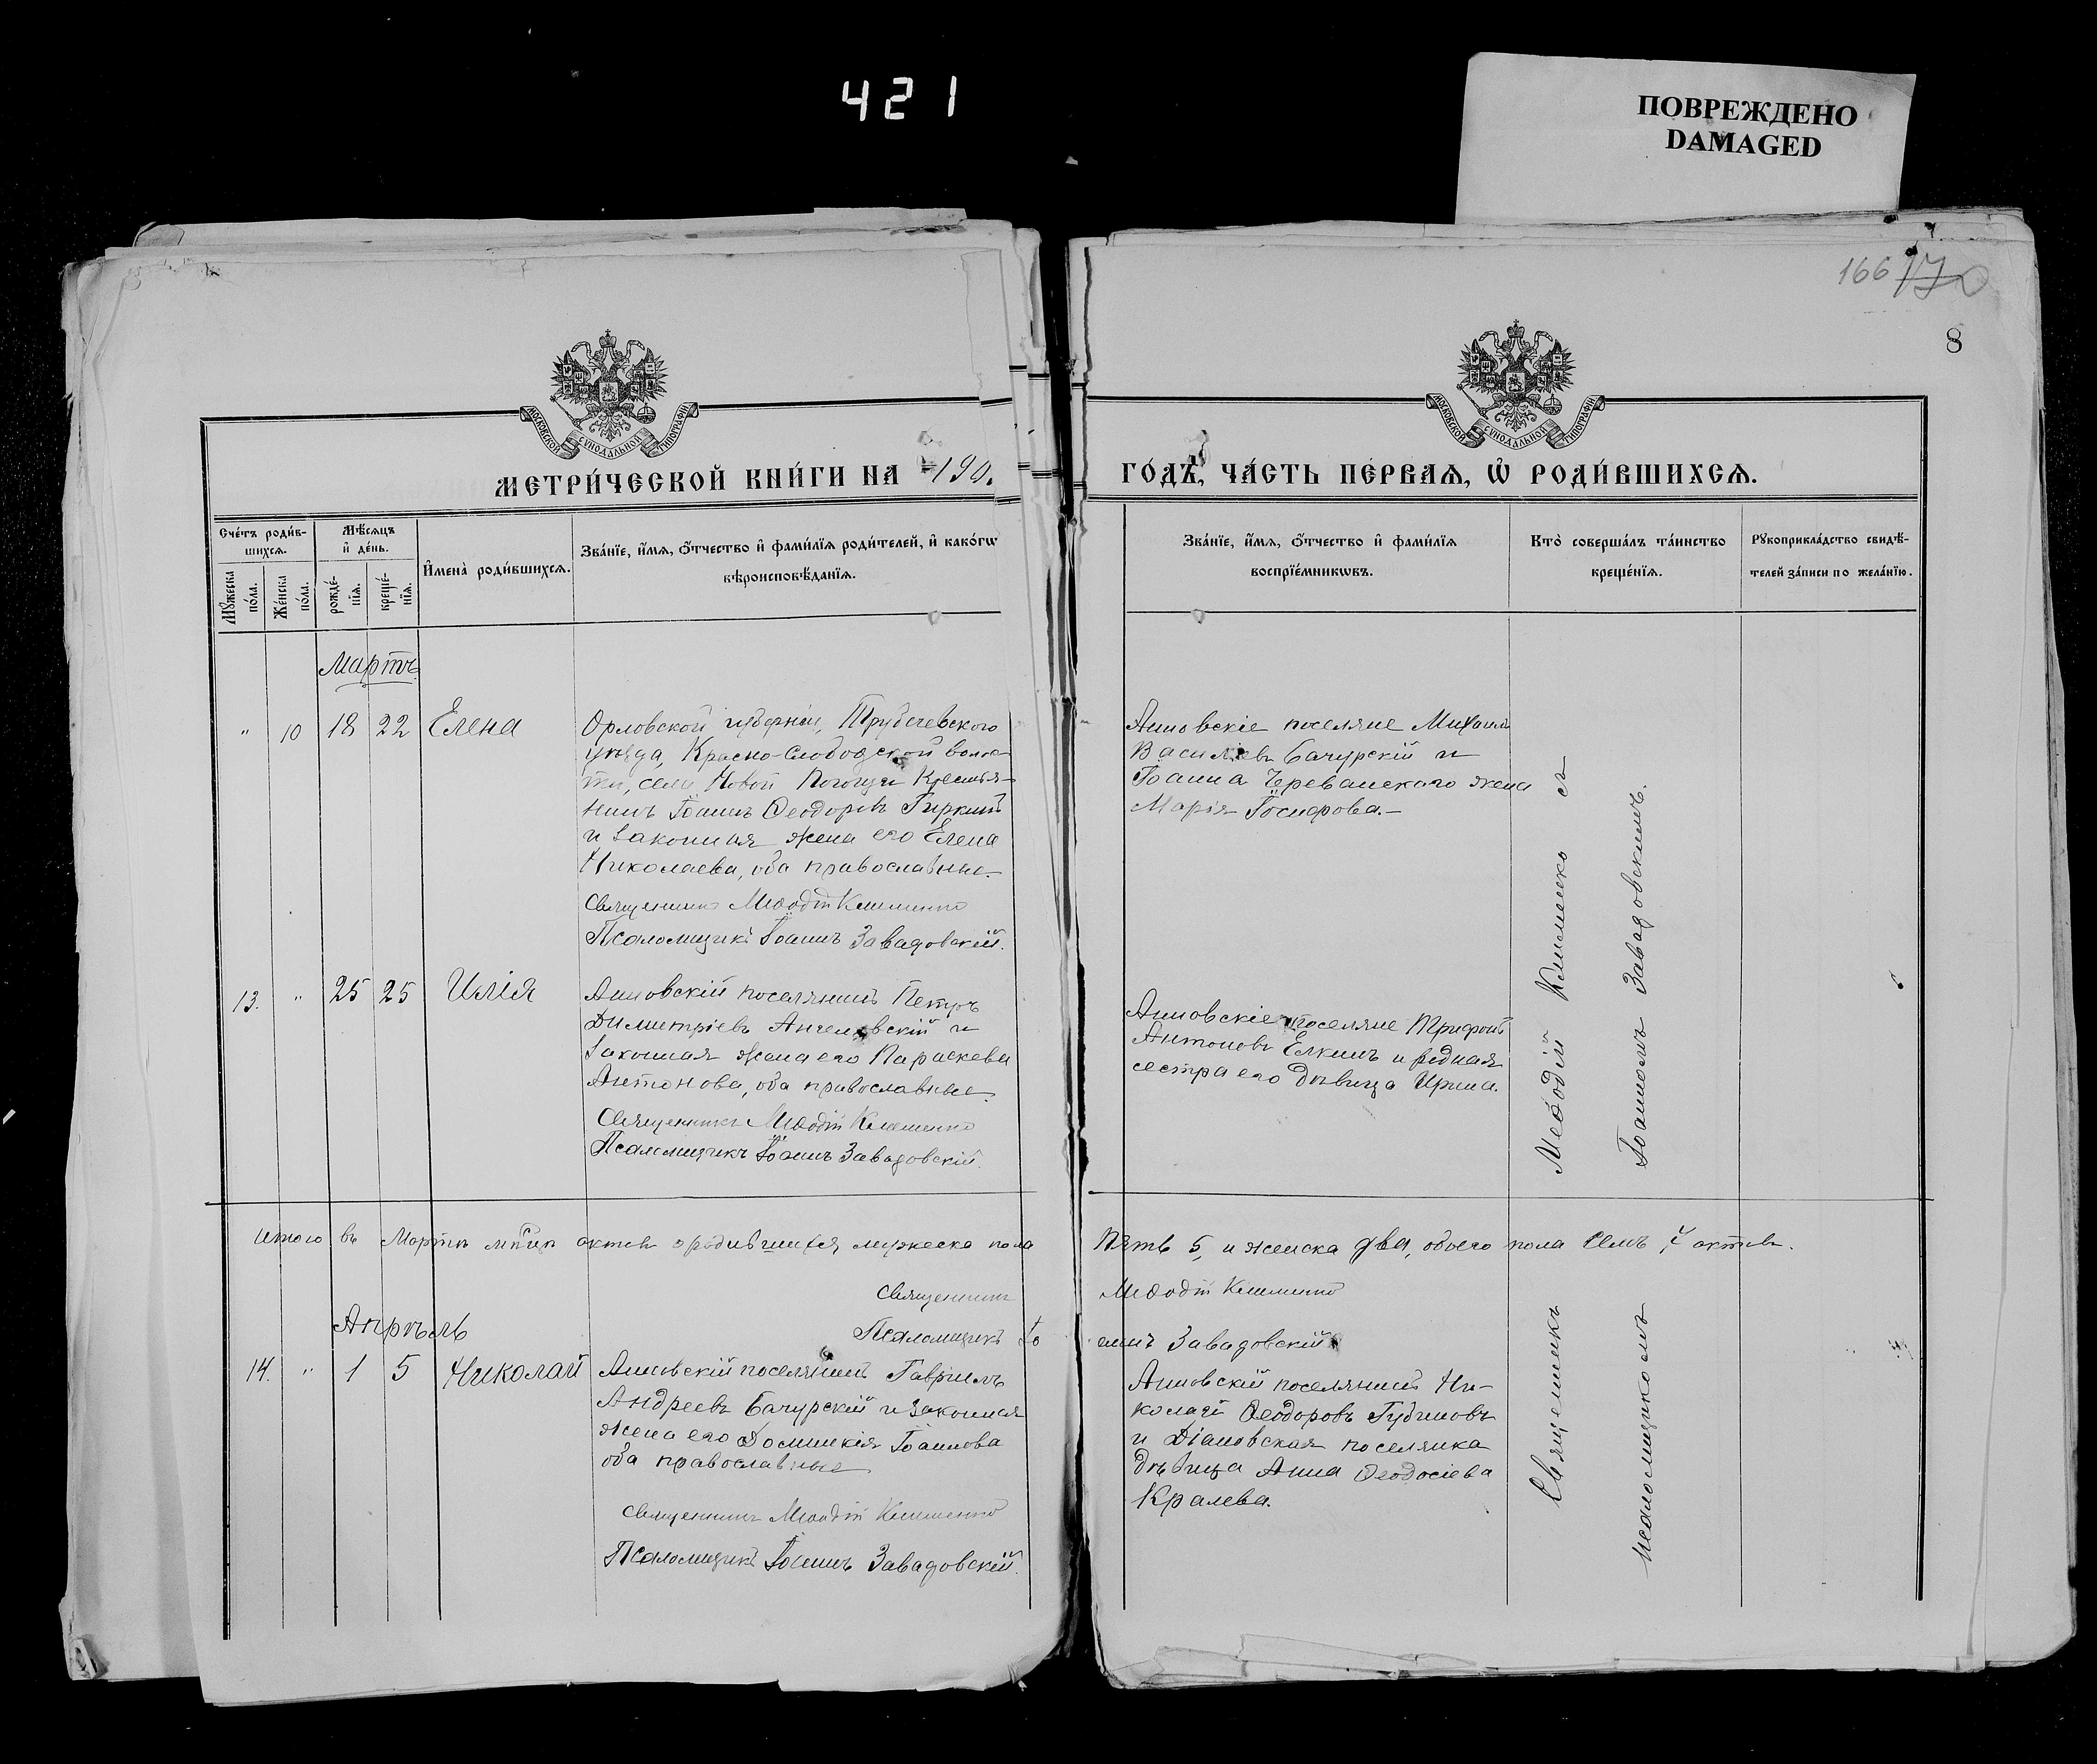 421
ПОВРЕЖДЕНО
DAMAGED
166 170
8
МОСКОВСКОЙ СѴНОДАЛЬНОЙ ТИПОГРАФІИ
МОСКОВСКОЙ СѴНОДАЛЬНОЙ ТИПОГРАФІИ
МЕТРИ́ЧЕСКОЙ КНИ́ГИ НА 190
ГО́ДЪ, ЧА́СТЬ ПЕ́РВАѦ, Ѡ҆ РОДИ́ВШИХСѦ.
Сче́тъ роди́в-
шихсѧ.
Мꙋ́жеска по́ла.
Же́нска по́ла.
Мѣ́сѧцъ
и҆ де́нь.
рожде́-нїѧ.
креще́-нїѧ.
И҆мена̀ роди́вшихсѧ.
Зва́нїе, и҆́мѧ, ѻ҆́тчество и҆ фами́лїѧ роди́телей, и҆ како́гѡ
вѣроисповѣ́данїѧ.
Зва́нїе, и҆́мѧ, ѻ҆́тчество и҆ фами́лїѧ
воспрїе́мникѡвъ.
Кто̀ соверша́лъ та́инство
креще́нїѧ.
Рꙋкоприкла́дство свидѣ́-
телей за́писи по жела́нїю.
Мартъ
" 10 18 22 Елена
Орловской губерніи, Трубчевского
уѣзда, Красно-Слободской волос-
ти, села Новой Погощи Крестья-
нинъ Іоаннъ Ѳеодоровъ Гиркинъ
и законная жена его Елена
Николаева, оба православные.
Священникъ Меѳодій Клименко
Псаломщикъ Іоаннъ Завадовскій.
Анновскіе поселяне Михаилъ
Василіевъ Бачурскій и
Іоанна Череванскаго жена
Марія Іосифова.
13. " 25 25 Илія
Анновскій поселянинъ Петръ
Димитріевъ Ангеловскій и
законная жена его Параскева
Антонова, оба православные.
Священникъ Меѳодій Клименко
Псаломщикъ Іоаннъ Завадовскій.
Анновскіе поселяне Трифонъ
Антоновъ Елкинъ и родная
сестра его дѣвица Ирина.
Итого въ Мартѣ м-цѣ актовъ о родившихся мужеска пола
Пять 5, и женска два, обоего пола семь 7 актовъ.
Священникъ Меѳодій Клименко
Псаломщикъ Іоаннъ Завадовскій
Апрѣль
14. " 1 5 Николай
Анновскій поселянинъ Гавріилъ
Андреевъ Бачурскій и законная
жена его Домникія Іоаннова
оба православные
Священникъ Меѳодій Клименко
Псаломщикъ Іоаннъ Завадовскій.
Анновскій поселянинъ Ни-
колай Ѳеодоровъ Губиновъ
и Діановская поселянка
дѣвица Анна Ѳеодосіева
Кралева.
Священникъ Меѳодій Клименко съ
псаломщикомъ Іоанномъ Завадовскимъ.